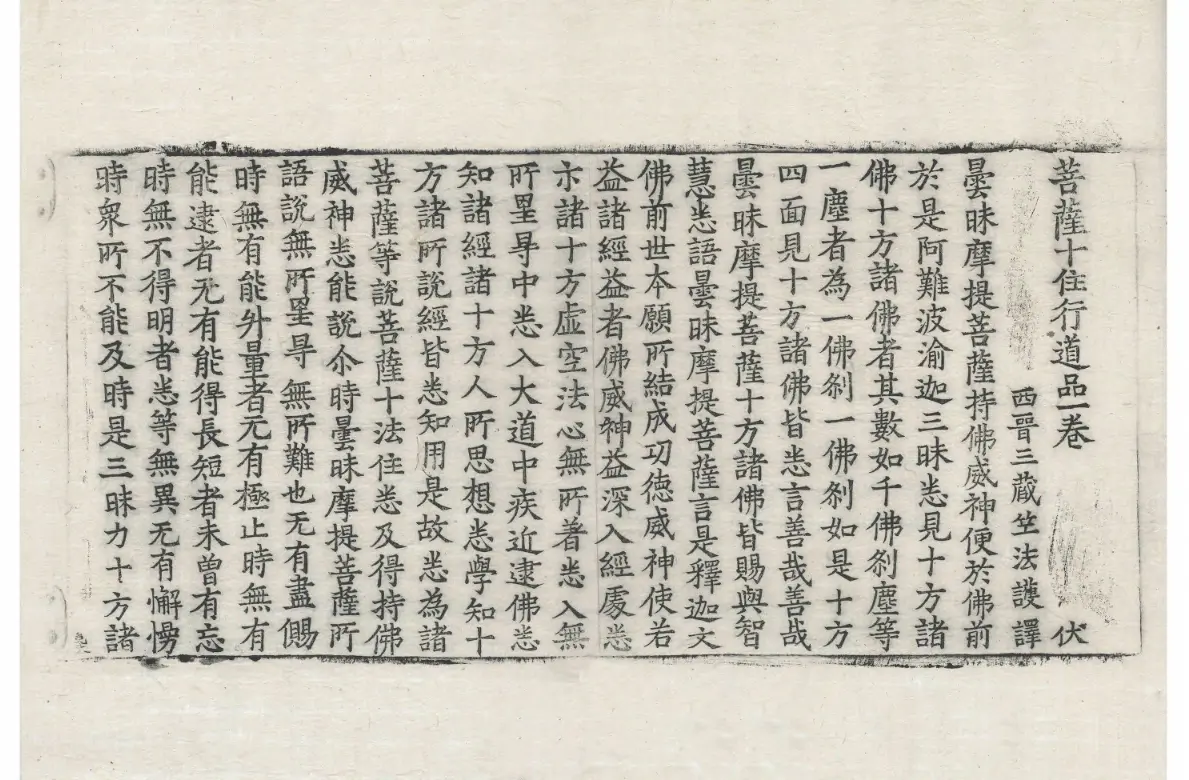 菩薩十住行道品一卷 伏
西晉三藏竺法護譯
曇昧摩提菩薩持佛威神便於佛前
於是阿難波渝迦三昧悉見十方諸
佛十方諸佛者其數如千佛刹塵等
一塵者為一佛刹一佛刹如是十方
四面見十方諸佛皆悉言善哉善哉
曇昧摩提菩薩十方諸佛皆賜與智
慧悉語曇昧摩提菩薩言是釋迦文
佛前世本願所結成功徳威神使若
益諸經益者佛威神益深入經處悉
示諸十方虛空法心無所著悉入無
所罣㝵中悉入大道中疾近逮佛悉
知諸經諸十方人所思想悉學知十
方諸所說經皆悉知用是故悉為諸
菩薩等說菩薩十法住悉及得持佛
威神悉能說尒時曇昧摩提菩薩所
語說無所罣㝵無所難也无有盡賜
時無有能升量者无有極止時無有
能逮者无有能得長短者未曾有忘
時無不得明者悉等無異无有懈慢
時衆所不能及時是三昧力十方諸